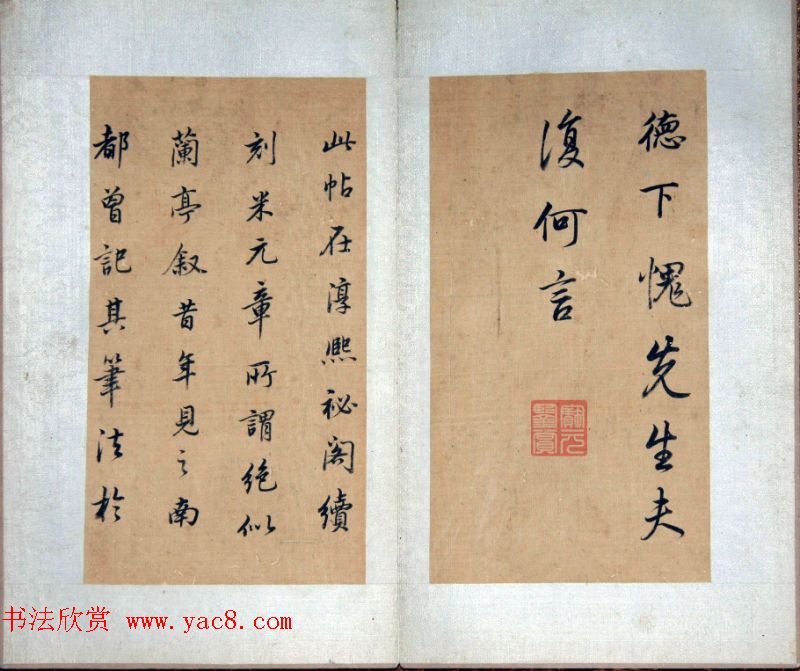 德下愧先生夫
復何言
此帖在淳熙祕閣續
刻米元章所謂絶似
蘭亭叙昔年見之南
都曾記其筆法於
书法欣赏 www.yac8.com